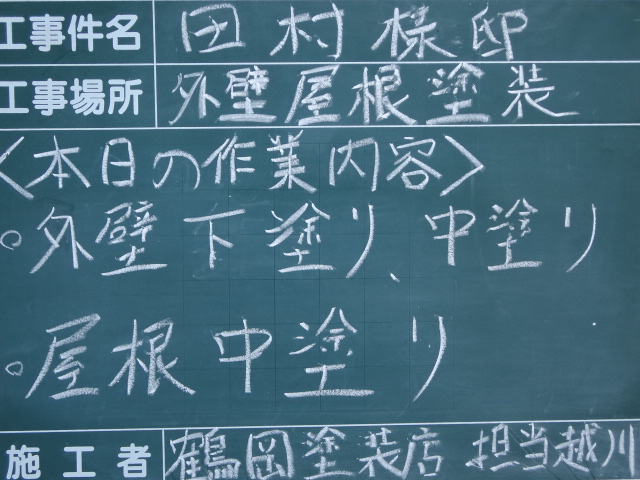 工事件名 田村様邸
工事場所 外壁屋根塗装
<本日の作業内容>
○外壁下塗り、中塗り
○屋根中塗り
施工者 鶴岡塗装店 担当越川